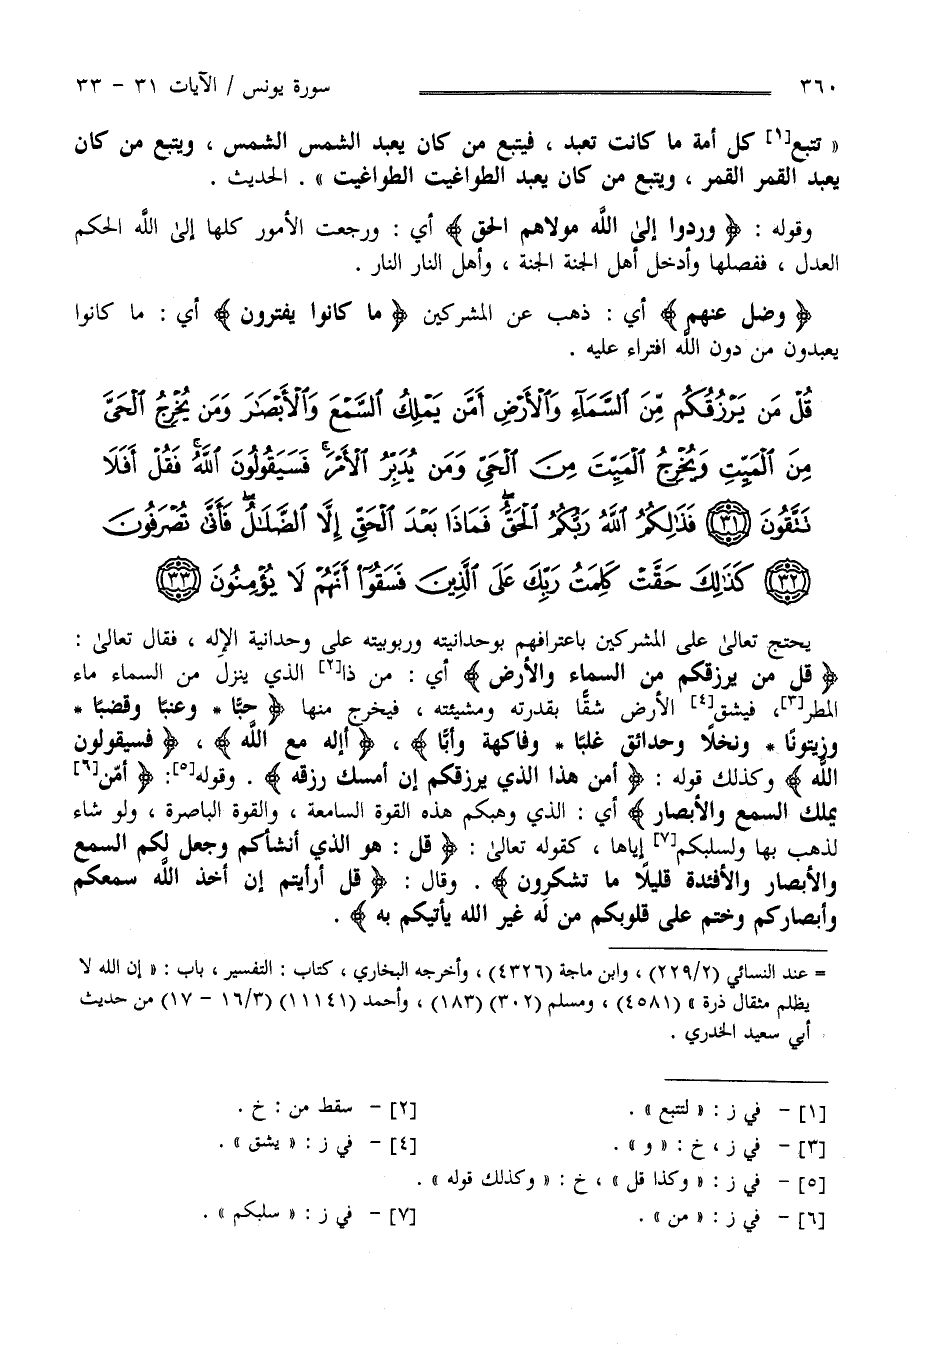 ٣٦٠ سورة يونس / الآيات ٣١ - ٣٣
« تتبع[١] كل أمة ما كانت تعبد ، فيتبع من كان يعبد الشمس الشمس ، ويتبع من كان
يعبد القمر القمر ، ويتبع من كان يعبد الطواغيت الطواغيت » . الحديث .
وقوله : ﴿ وردوا إلىٰ اللَّه مولاهم الحق ﴾ أي : ورجعت الأمور كلها إلىٰ اللَّه الحكم
العدل ، ففصلها وأدخل أهل الجنة الجنة ، وأهل النار النار .
﴿ وضل عنهم ﴾ أي : ذهب عن المشركين ﴿ ما كانوا يفترون ﴾ أي : ما كانوا
يعبدون من دون اللَّه افتراء عليه .
قُلْ مَن يَرْزُقُكُم مِّنَ ٱلسَّمَآءِ وَٱلْأَرْضِ أَمَّن يَمْلِكُ ٱلسَّمْعَ وَٱلْأَبْصَٰرَ وَمَن يُخْرِجُ ٱلْحَىَّ
مِنَ ٱلْمَيِّتِ وَيُخْرِجُ ٱلْمَيِّتَ مِنَ ٱلْحَىِّ وَمَن يُدَبِّرُ ٱلْأَمْرَ ۚ فَسَيَقُولُونَ ٱللَّهُ ۚ فَقُلْ أَفَلَا
نَتَّقُونَ ﴿٣١﴾ فَذَٰلِكُمُ ٱللَّهُ رَبُّكُمُ ٱلْحَقُّ ۖ فَمَاذَا بَعْدَ ٱلْحَقِّ إِلَّا ٱلضَّلَٰلُ ۖ فَأَنَّىٰ تُصْرَفُونَ
﴿٣٢﴾ كَذَٰلِكَ حَقَّتْ كَلِمَتُ رَبِّكَ عَلَى ٱلَّذِينَ فَسَقُوٓا۟ أَنَّهُمْ لَا يُؤْمِنُونَ ﴿٣٣﴾
يحتج تعالىٰ على المشركين باعترافهم بوحدانيته وربوبيته على وحدانية الإله ، فقال تعالىٰ :
﴿ قل من يرزقكم من السماء والأرض ﴾ أي : من ذا[٢] الذي ينزل من السماء ماء
المطر[٣]، فيشق[٤] الأرض شقًّا بقدرته ومشيئته ، فيخرج منها ﴿ حبًّا * وعنبًا وقضبًا *
وزيتونًا * ونخلًا وحدائق غلبًا * وفاكهة وأبًّا ﴾ ، ﴿ أإله مع اللَّه ﴾ ، ﴿ فسيقولون
اللَّه ﴾ وكذلك قوله : ﴿ أمن هذا الذي يرزقكم إن أمسك رزقه ﴾ . وقوله[٥]: ﴿ أمّن[٦]
يملك السمع والأبصار ﴾ أي : الذي وهبكم هذه القوة السامعة ، والقوة الباصرة ، ولو شاء
لذهب بها ولسلبكم[٧] إياها ، كقوله تعالىٰ : ﴿ قل : هو الذي أنشأكم وجعل لكم السمع
والأبصار والأفئدة قليلًا ما تشكرون ﴾ . وقال : ﴿ قل أرأيتم إن أخذ اللَّه سمعكم
وأبصاركم وختم على قلوبكم من إله غير الله يأتيكم به ﴾ .
= عند النسائي (٢٢٩/٢) ، وابن ماجة (٤٣٢٦) ، وأخرجه البخاري ، كتاب : التفسير ، باب : « إن الله لا
يظلم مثقال ذرة » (٤٥٨١) ، ومسلم (٣٠٢) (١٨٣) ، وأحمد (١١١٤١) (١٦/٣ - ١٧) من حديث
أبي سعيد الخدري .
[١] - في ز : « لتتبع » . [٢] - سقط من : خ .
[٣] - في ز ، خ : « و » . [٤] - في ز : « يشق » .
[٥] - في ز : « وكذا قل » ، خ : « وكذلك قوله » .
[٦] - في ز : « من » . [٧] - في ز : « سلبكم » .